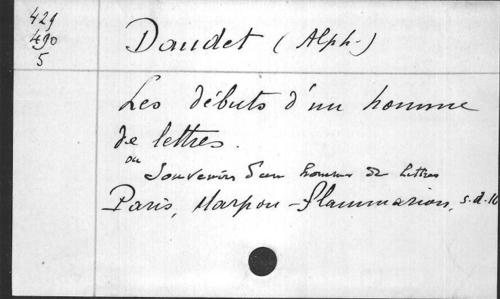 429
490
5
Daudet (Alph-)
Les débuts d'un homme
de lettres.
ou
Souvenirs d'un homme de lettres
Paris, Marpon-Flammarion, s.d. 16